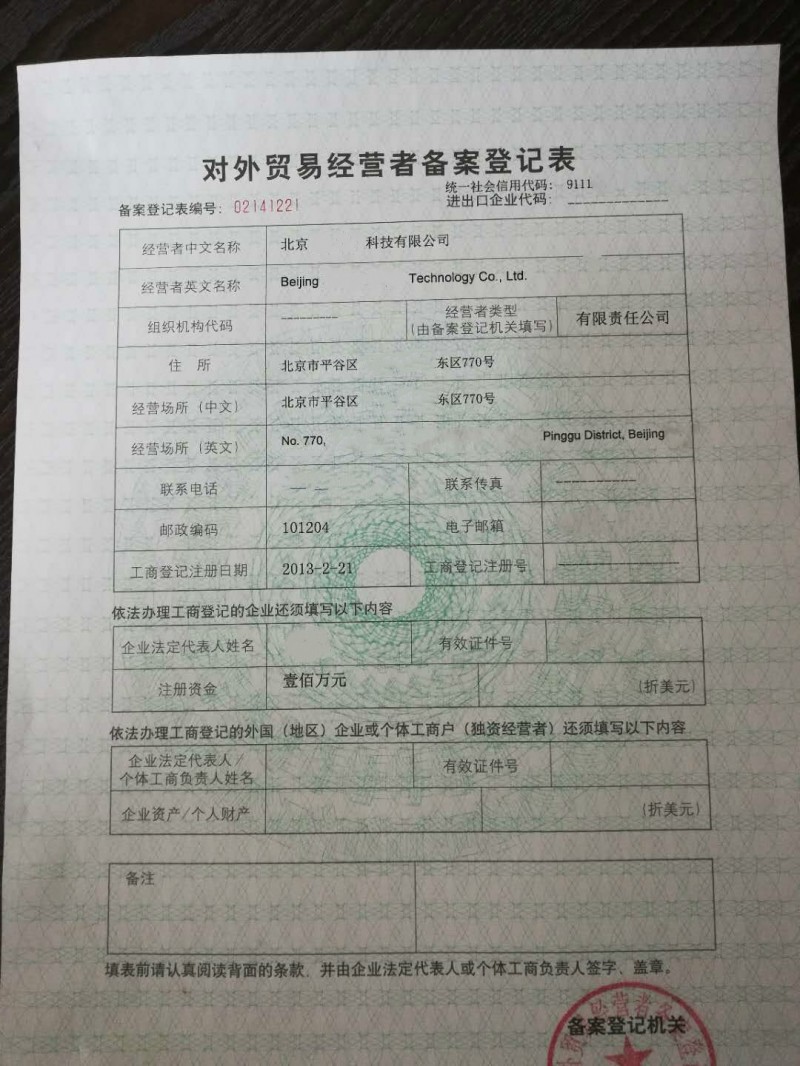 对外贸易经营者备案登记表
统一社会信用代码： 9111
备案登记表编号： 02141221 进出口企业代码： _____________
经营者中文名称 北京 科技有限公司
经营者英文名称 Beijing Technology Co., Ltd.
组织机构代码 --------- 经营者类型 (由备案登记机关填写) 有限责任公司
住 所 北京市平谷区 东区770号
经营场所（中文） 北京市平谷区 东区770号
经营场所（英文） No. 770, Pinggu District, Beijing
联系电话 — — 联系传真 ----------
邮政编码 101204 电子邮箱
工商登记注册日期 2013-2-21 工商登记注册号 ---------------
依法办理工商登记的企业还须填写以下内容
企业法定代表人姓名 有效证件号
注册资金 壹佰万元 (折美元)
依法办理工商登记的外国（地区）企业或个体工商户（独资经营者）还须填写以下内容
企业法定代表人/ 个体工商负责人姓名 有效证件号
企业资产/个人财产 (折美元)
备注
填表前请认真阅读背面的条款，并由企业法定代表人或个体工商负责人签字、盖章。
备案登记机关